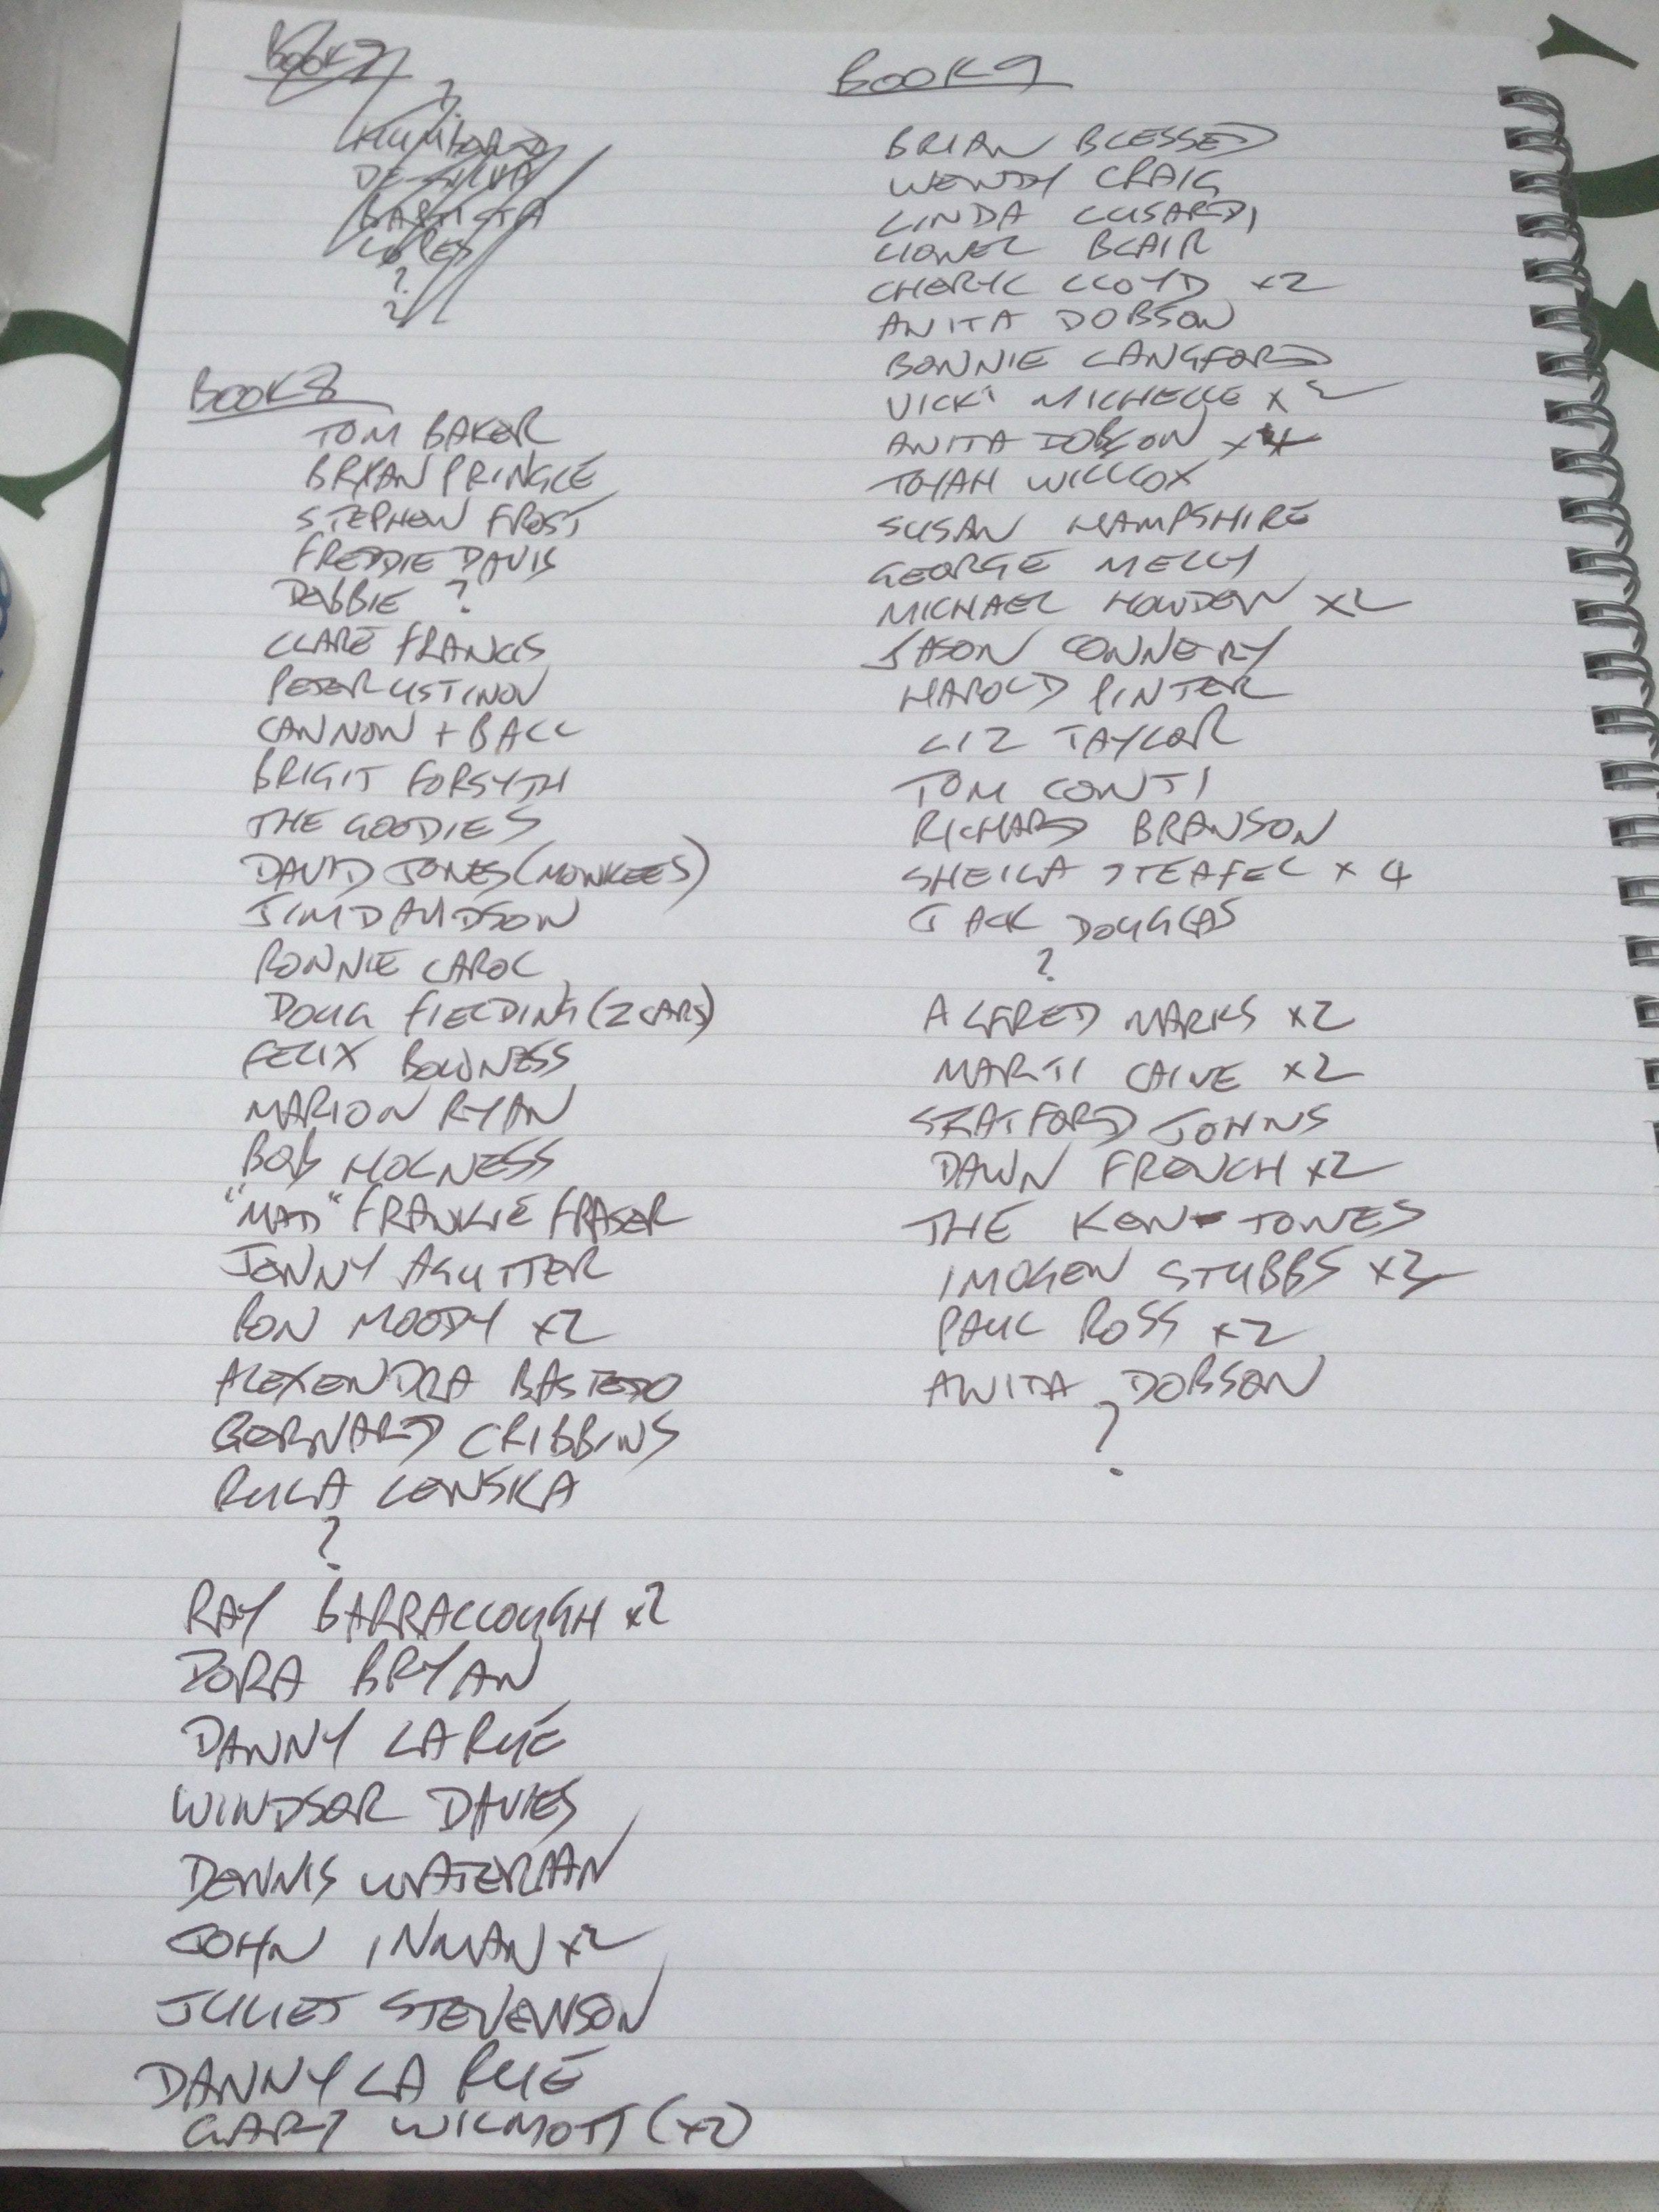 BOOK 7
?
HUMBARD
DE-SILVA
BAPTISTA
LOPES
?
?
BOOK 8
TOM BAKER
BRYAN PRINGLE
STEPHEN FROST
FREDDIE DAVIS
DEBBIE ?
CLARE FRANCIS
PETER USTINOV
CANNON + BALL
BRIGIT FORSYTH
THE GOODIES
DAVID JONES (MONKEES)
JIM DAVIDSON
RONNIE CAROL
DOUG FIELDING (Z CARS)
FELIX BOWNESS
MARION RYAN
BOB HOLNESS
"MAD" FRANKIE FRASER
JENNY AGUTTER
RON MOODY x2
ALEXENDRA BASTEDO
BERNARD CRIBBINS
RULA LENSKA
?
RAY BARRACLOUGH x2
DORA BRYAN
DANNY LA RUE
WINDSOR DAVIES
DENNIS WATERMAN
JOHN INMAN x2
JULIET STEVENSON
DANNY LA RUE
GARY WILMOTT (x2)
BOOK 9
BRIAN BLESSED
WENDY CRAIG
LINDA LUSARDI
LIONEL BLAIR
CHERYL LLOYD x2
ANITA DOBSON
BONNIE LANGFORD
VICKI MICHELLE x2
ANITA DOBSON x4
TOYAH WILLCOX
SUSAN HAMPSHIRE
GEORGE MELLY
MICHAEL HOWDEN x2
JASON CONNERY
HAROLD PINTER
LIZ TAYLOR
TOM CONTI
RICHARD BRANSON
SHEILA STEAFEL x 4
JACK DOUGLAS
?
ALFRED MARKS x2
MARTI CAINE x2
STRATFORD JOHNS
DAWN FRENCH x2
THE KEN-TONES
IMOGEN STUBBS x2
PAUL ROSS x2
ANITA DOBSON
?